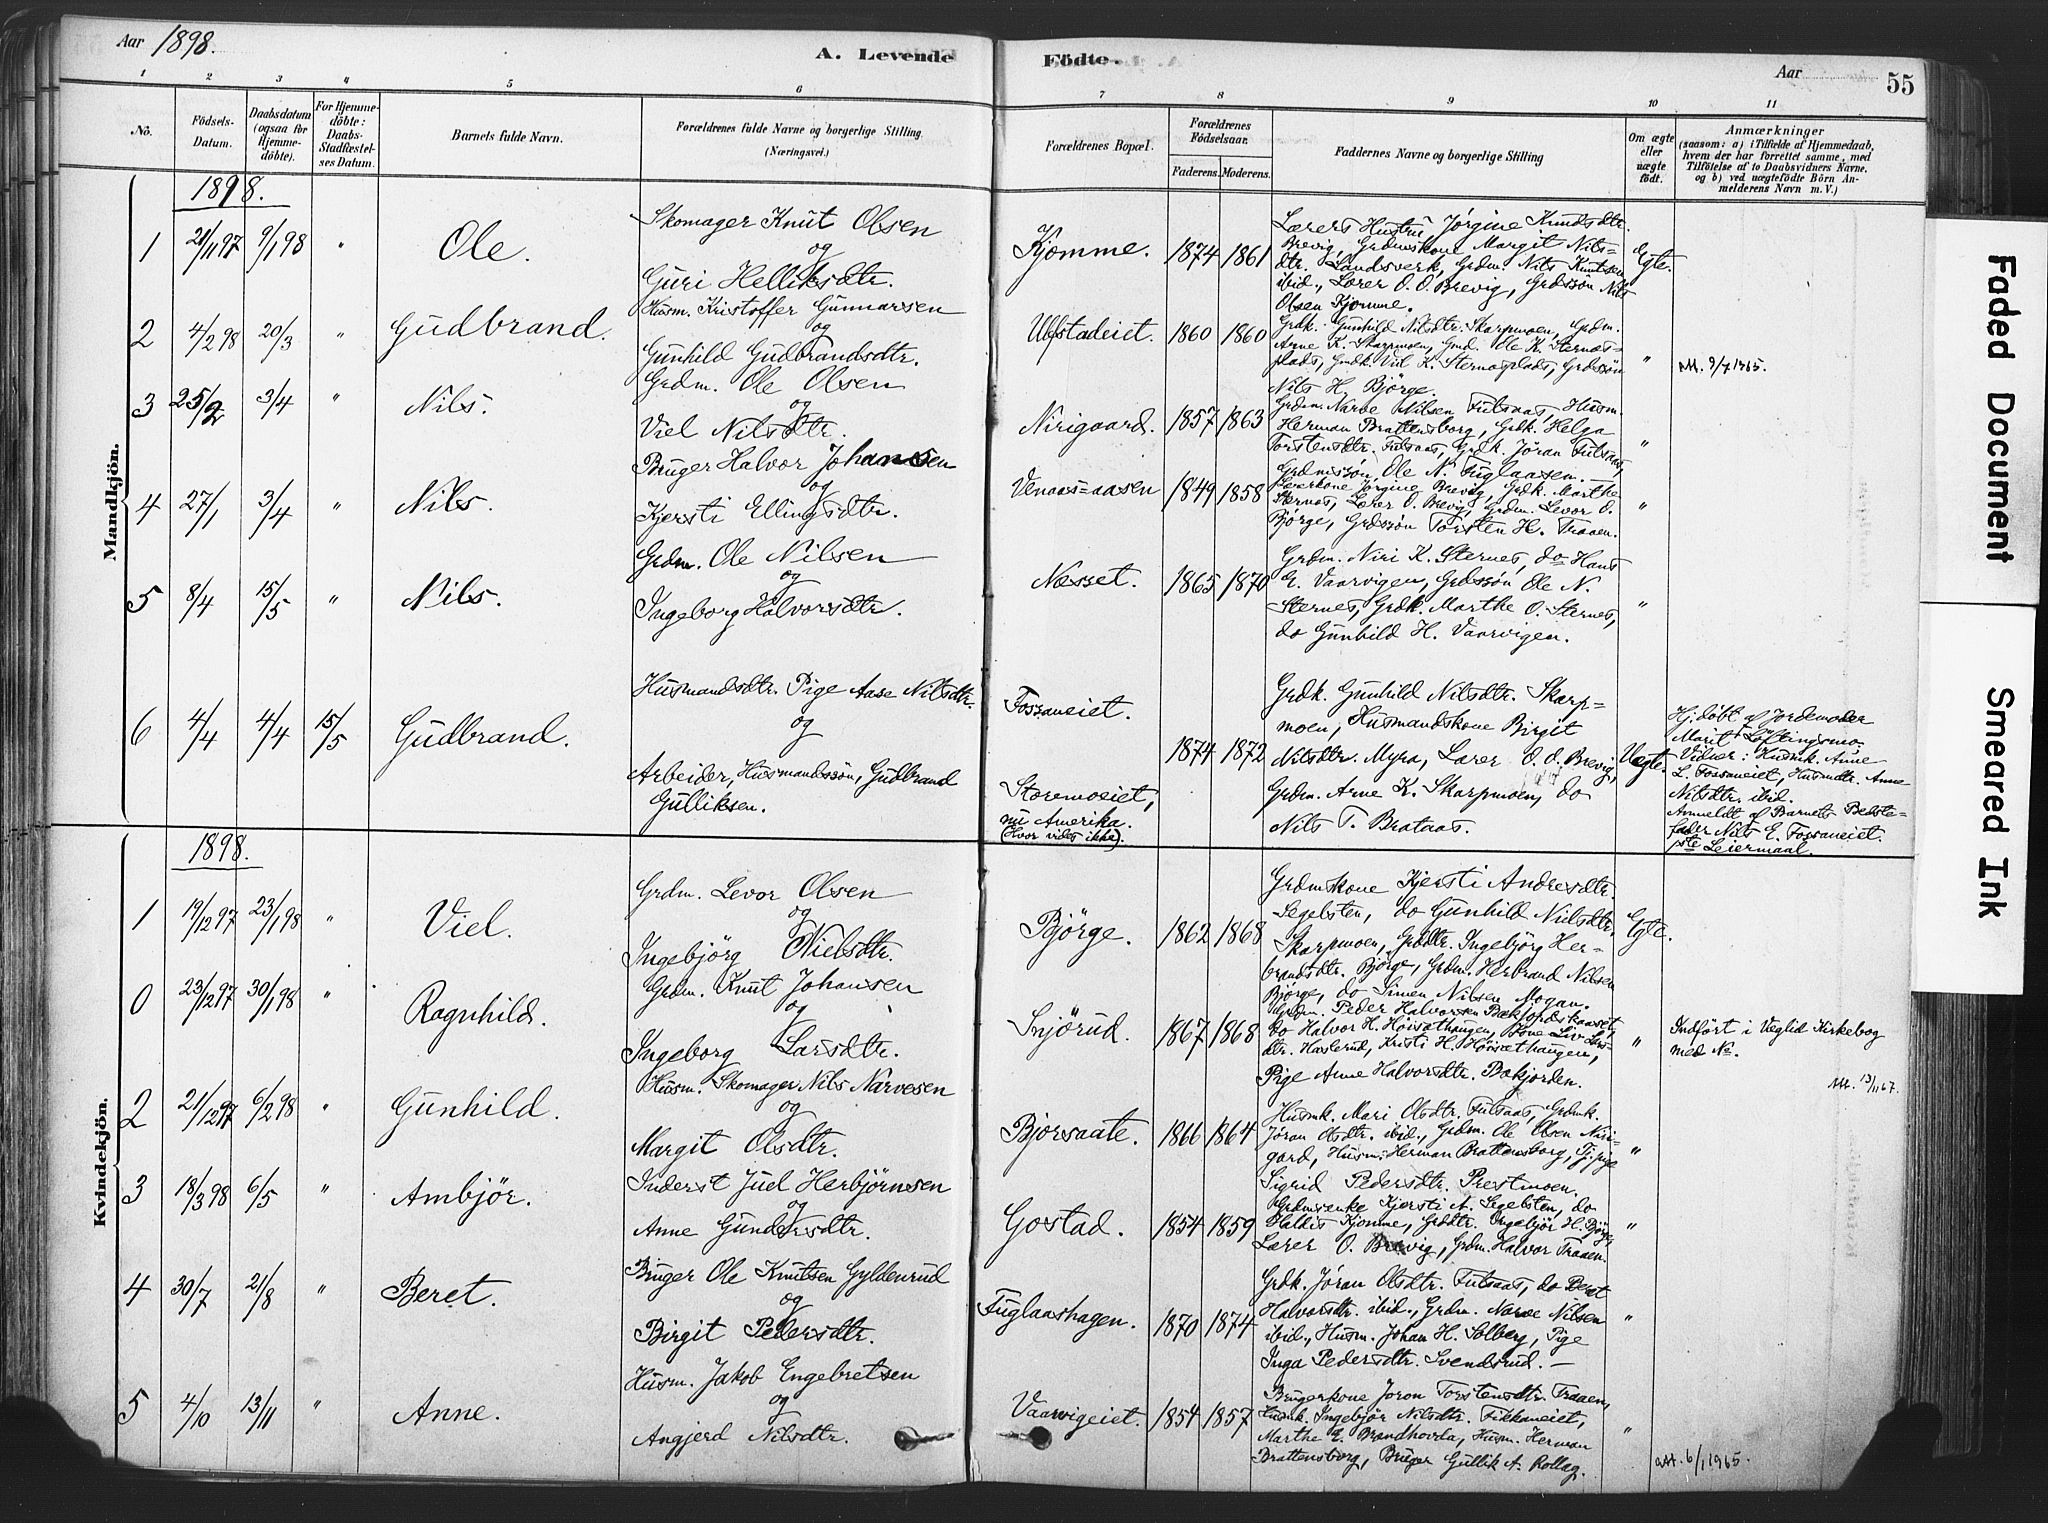 Aar 1898.
A. Levende Födte.
Aar 55
1 2 3 4 5 6 7 8 9 10 11
No.
Födsels-Datum.
Daabsdatum (ogsaa for Hjemmedöbte).
For Hjemmedöbte: Daabs-Stadfæstelses Datum.
Barnets fulde Navn.
Forældrenes fulde Navne og borgerlige Stilling
(Næringsvei.)
Forældrenes Bopæl.
Forældrenes Födselsaar.
Faderens. Moderens.
Faddernes Navne og borgerlige Stilling
Om ægte eller uægte födt.
Anmærkninger
(saasom: a) i Tilfælde af Hjemmedaab,
hvem der har forrettet samme, med
Tilföielse af to Daabsvidners Navne,
og b) ved uægtefödte Börn An-
melderens Navn m. V.)
Mandkjön.
1898.
1 21/11 97 9/1 98 " Ole.
Skomager Knut Olsen
og
Guri Helliksdtr.
Kjomme. 1874 1861
Lærers Hustru Jørgine Knudsdtr.
Brevig, Grdmskone Margit Nils-
dtr. Landsverk, Grdm. Nils Knutsen
ibid., Lærer O. O. Brevig, Grdssøn Nils
Olsen Kjomme.
Egte.
2 4/2 98 20/3 " Gudbrand.
Husm. Kristoffer Gunnarsen
og
Gunhild Gudbrandsdtr.
Ulfstadeiet 1860 1860
Grdk. Gunhild Nilsdtr. Skarpmoen, Grdm.
Arne K. Skarpmoen, Grmd. Ole K. Sternes-
plads, Grndk. Viel K. Sternesplads, Grdssøn
Nils H. Bjørge.
"
att. 9/7 1965.
3 25/2 3/4 " Nils.
Grdm. Ole Olsen
og
Viel Nilsdtr.
Nirigaard. 1857 1863
Grdm. Narve Nilsen Fulsaas, Husm.
Herman Brattensborg, Grdk. Helga
Torstensdtr. Fulsaas, Grdk. Jöran Fulsaas,
Grdmssøn Ole N. Fuglaasen.
"
4 27/1 3/4 " Nils.
Bruger Halvor Johansen
og
Kjersti Ellingsdtr.
Venaas=aasen 1849 1858
Lærerkone Jörgine Brevig, Grdk. Marthe
Sternes, Lærer O. Brevig, Grdm. Levor O.
Bjørge, Grdssøn Torsten H. Traaen.
"
5 8/4 15/5 " Nils.
Grdm. Ole Nilsen
og
Ingeborg Halvorsdtr.
Næsset. 1865 1870
Grdm. Niri K. Sternes, do Hans
E. Vaarvigen, Grdssøn Ole N.
Sternes, Grdk. Marthe O. Sternes,
do Gunhild H. Vaarvigen.
"
6 4/4 4/4 15/5 Gudbrand.
Husmandsdtr. Pige Aase Nilsdtr.
og
Arbeider, Husmandssøn, Gudbrand
Gulliksen.
Fossaneiet.
Storemoeiet,
nu Amerika.
(Hvor vides ikke).
1874 1872
Grdk. Gunhild Nilsdtr. Skarp-
moen, Husmandskone Birgit
Nilsdtr. Myra, Lærer O. O. Brevig,
Grdm. Arne K. Skarpmoen, do
Nils T. Brataas.
Uegte.
Hj.døbt af Jordemoder
Marit Løftingsmo.
Vidner: Husmk. Anne
L. Fossaneiet, Husmdtr. Anne
Nilsdtr. ibid.
Anmeldt af Barnets Bedste-
fader Nils E. Fossaneiet.
Leiermaal.
Kvindekjön.
1898.
1 19/12 97 23/1 98 " Viel.
Grdm. Levor Olsen
og
Ingebjörg Nielsdtr.
Bjørge. 1862 1868
Grdmskone Kjersti Andresdtr.
Segelsten, do Gunhild Nielsdtr.
Skarpmoen, Grddtr. Ingebjörg Her-
brandsdtr. Bjørge, Grdm. Herbrand Nilsen
Bjørge, do Simen Nilsen Mogan.
Egte.
0 23/12 97 30/1 98 " Ragnhild.
Grdm. Knut Johansen
og
Ingeborg Larsdtr.
Snjörud. 1867 1868
Grdm. Peder Halvorsen
do Halvor H. Høisæthaugen, Kone Liv Lars-
dtr. Haslerud, Kristi H. Høisæthaugen,
Pige Anne Halvorsdtr. Bækjorden.
"
Indfört i Veglid Kirkebog
med No.
Att. 13/11 67.
2 21/12 97 6/2 98 " Gunhild.
Husm. Skomager Nils Narvesen
og
Margit Olsdtr.
Bjørsaate. 1866 1864
Husmk. Mari Olsdtr. Fulsaas, Grdmk.
Jöran Olsdtr. ibid., Grdm. Ole Olsen Niri-
gard, Husm. Herman Brattensborg, Tj. pige
Sigrid Pedersdtr. Prestmoen.
"
3 18/3 98 6/5 " Ambjör.
Inderst Juel Herbjørnsen
og
Anne Gundersdtr.
Gostad. 1854 1859
Grdmsenke Kjersti A. Segelsten, do
Haldis Kjomme, Grddtr. Ingebjör H. Bjørge,
Lærer O. Brevig, Grdm. Halvor Traaen.
"
4 30/7 21/8 " Beret.
Bruger Ole Knutsen Gyldenrud
og
Birgit Pedersdtr.
Fuglaashagen. 1870 1874
Grdk. Jöran Olsdtr. Fulsaas, do Beret
Halvorsdtr. ibid., Grdm. Narve Nilsen
ibid., Husm. Johan H. Solberg, Pige
Inga Pedersdtr. Svendsrud. —
"
5 4/10 13/11 " Anne.
Husm. Jakob Engebretsen
og
Angjerd Nilsdtr.
Vaarvigeiet. 1854 1857
Brugerkone Joron Torstensdtr. Traaen,
Husmk. Ingebjör Nilsdtr. Fikkaneiet,
Marthe E. Brandhovda, Husm. Herman
Brattensborg, Bruger Gullik A. Rollag.
"
att. 6/1 1965.
Faded Document
Smeared Ink